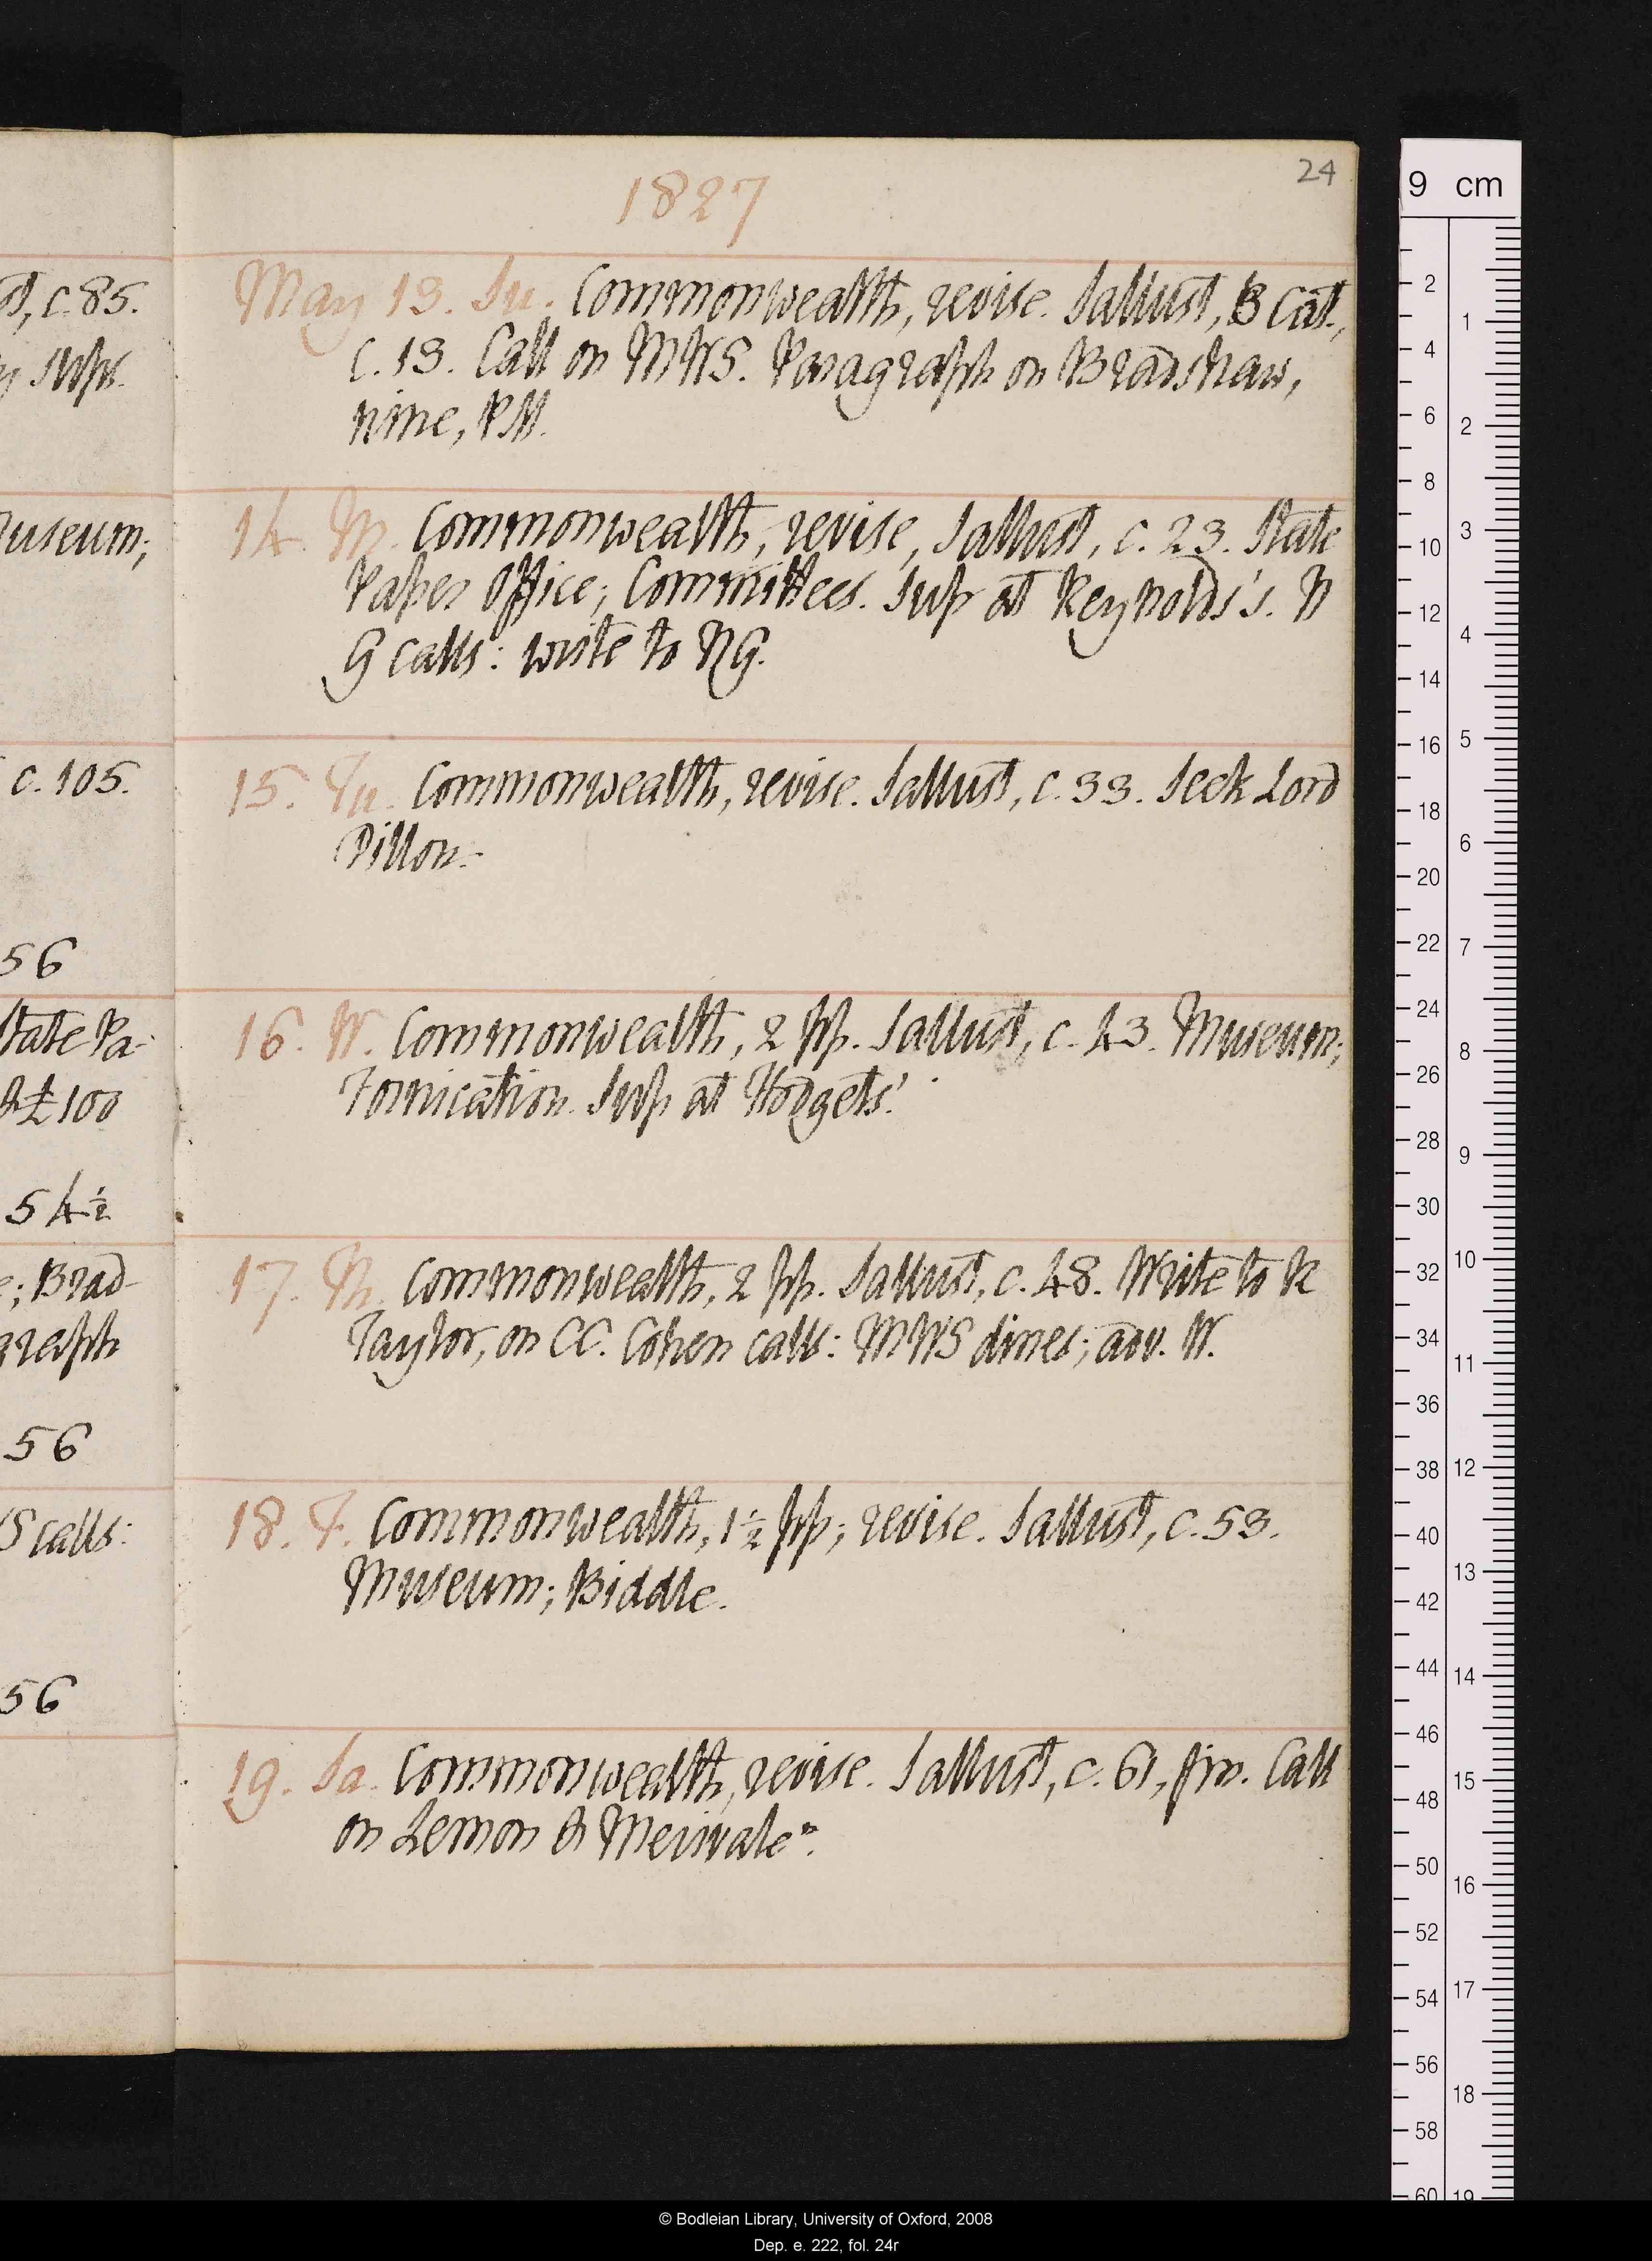 24
1827
May 13. Su. Commonwealth, revise. Sallust, B Cat.,
c. 13. Call on MWS. Paragraph on Bradshaw,
nine, PM.
14. M. Commonwealth, revise, Sallust, c. 23. State
Paper Office; Committees. Sup at Reynolds's. N
G calls: write to NG.
15. Tu. Commonwealth, revise. Sallust, c. 33. Seek Lord
Dillon.
16. W. Commonwealth, 2 pp. Sallust, c. 43. Museum;
Fornication. Sup at Hodgets'.
17. Th. Commonwealth, 2 pp. Sallust, c. 48. Write to R
Taylor, on CC. Cohen calls: MWS dines; adv. W.
18. F. Commonwealth, 1½ pp; revise. Sallust, c. 53.
Museum; Biddle.
19. Sa. Commonwealth, revise. Sallust, c. 61, fin. Call
on Lemon & Merivale n.
c. 85.
Sups.
useum;
c. 105.
56
State Pa-
£100
54½
; Brad-
graph
56
S calls:
56
9 cm
2
4
6
8
10
12
14
16
18
20
22
24
26
28
30
32
34
36
38
40
42
44
46
48
50
52
54
56
58
60
1
2
3
4
5
6
7
8
9
10
11
12
13
14
15
16
17
18
19
© Bodleian Library, University of Oxford, 2008
Dep. e. 222, fol. 24r